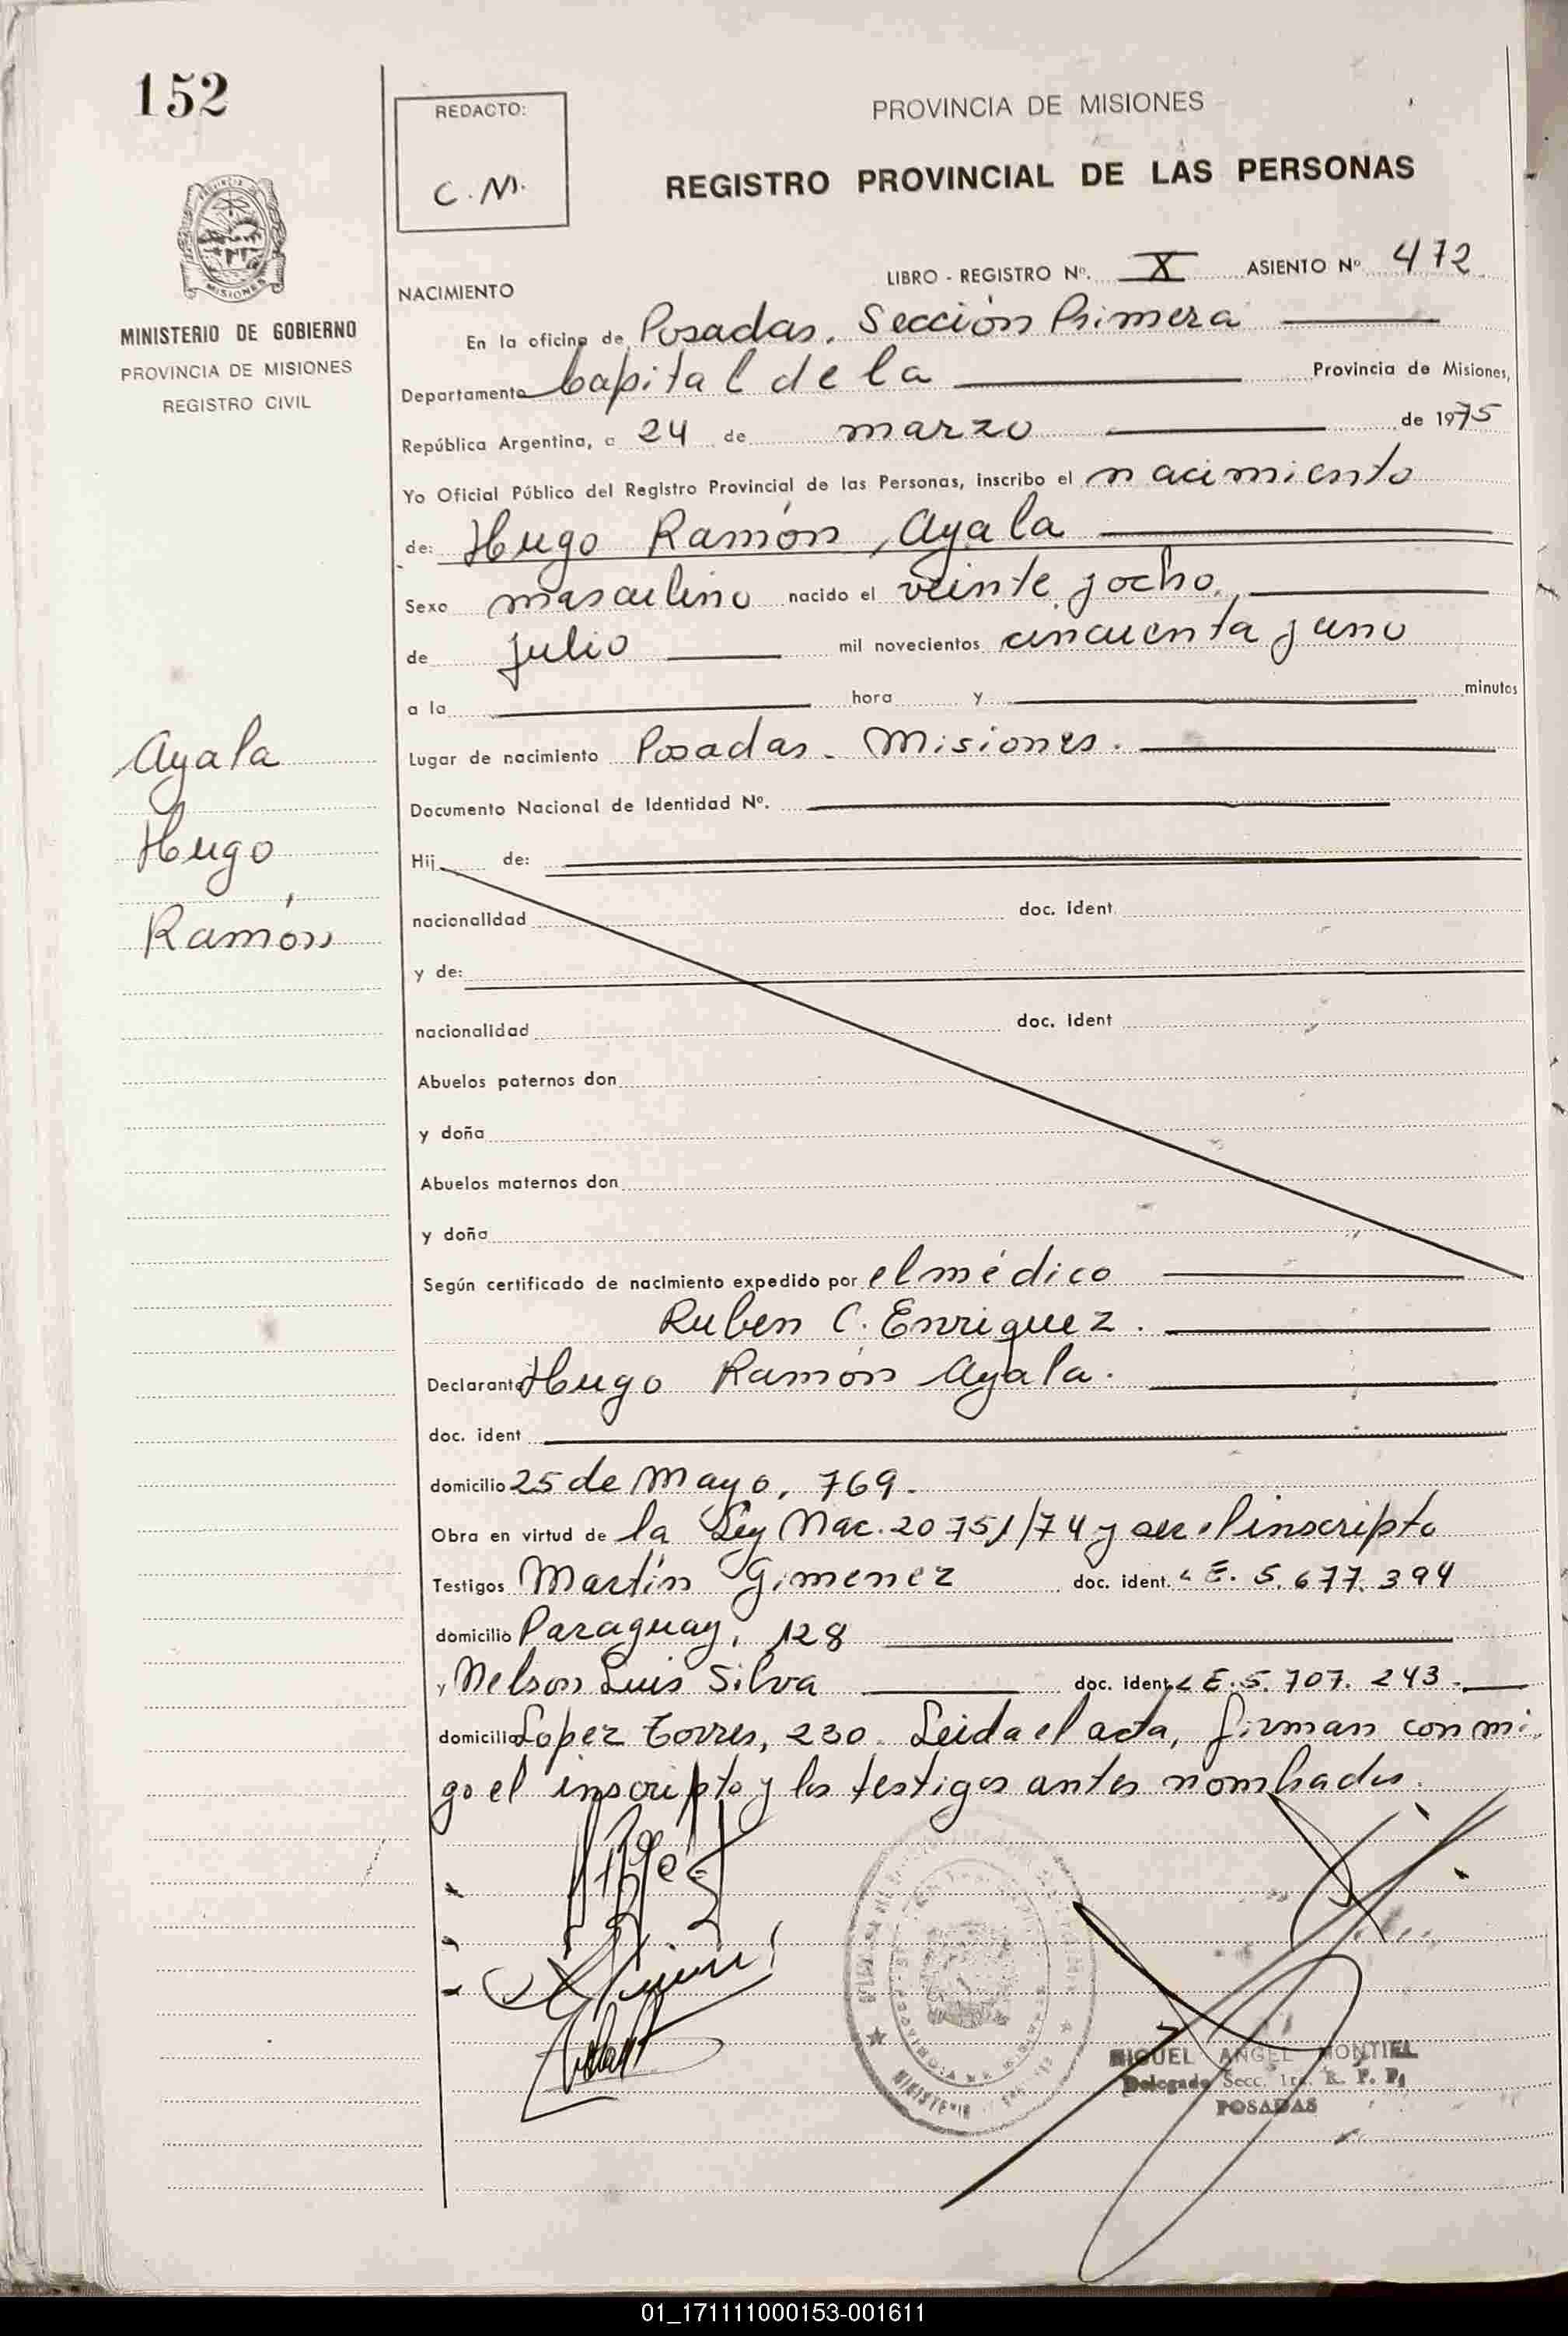 152
REDACTO:
C. M.
PROVINCIA DE MISIONES
REGISTRO PROVINCIAL DE LAS PERSONAS
MISIONES
MINISTERIO DE GOBIERNO
PROVINCIA DE MISIONES
REGISTRO CIVIL
LIBRO - REGISTRO Nº. X ASIENTO Nº 472
NACIMIENTO
En la oficina de Posadas, Sección Primera
Departamento Capital de la Provincia de Misiones,
República Argentina, a 24 de marzo de 1975
Yo Oficial Público del Registro Provincial de las Personas, inscribo el nacimiento
de: Hugo Ramón, Ayala
Sexo masculino nacido el veinte y ocho,
de julio mil novecientos cincuenta y uno
a la hora y minutos
Lugar de nacimiento Posadas - Misiones.
Documento Nacional de Identidad Nº.
Ayala
Hugo
Ramón
Hij de:
nacionalidad doc. ident
y de:
nacionalidad doc. ident
Abuelos paternos don
y doña
Abuelos maternos don
y doña
Según certificado de nacimiento expedido por el médico
Ruben C. Enriquez.
Declarante Hugo Ramón Ayala.
doc. ident
domicilio 25 de Mayo, 769.
Obra en virtud de la Ley Nac. 20751/74 y ser el inscripto
Testigos Martín Gimenez doc. ident. L E. 5.677.394
domicilio Paraguay, 128
y Nelson Luis Silva doc. ident L E. 5.707.243.
domicilio Lopez Torres, 230. Leida el acta, firman conmi
go el inscripto y los testigos antes nombrados.
MIGUEL ANGEL MONTIEL
Delegado Secc. 1ra. R. P. P.
POSADAS
01_171111000153-001611